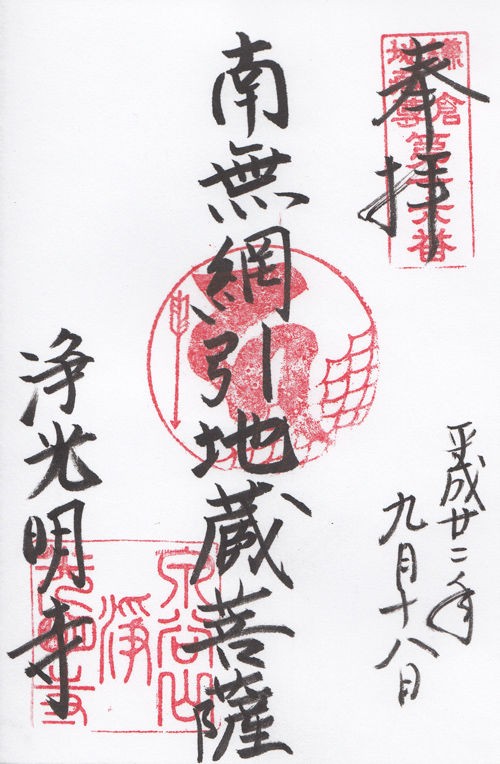 奉拝
鎌倉
地蔵尊
第十六番
平成廿二年
九月十八日
南無網引地蔵菩薩
浄光明寺
泉谷山
浄
光明寺